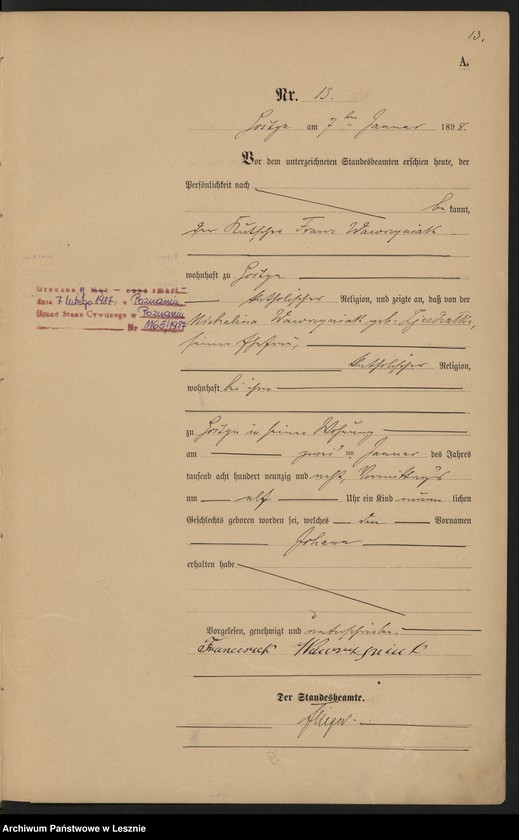 13.
A.
Nr. 13.
am 7ten Januar 1898.
Vor dem unterzeichneten Standesbeamten erschien heute, der
Persönlichkeit nach
be kannt,
der Kutscher Franz Wawrzyniak
wohnhaft zu
katholischer Religion, und zeigte an, daß von der
Michalina Wawrzyniak geb.
seiner Ehefrau,
katholischer Religion,
wohnhaft bei ihm
zu in seiner Wohnung
am zwei ten Januar des Jahres
tausend acht hundert neunzig und acht, Vormittags
um elf Uhr ein Kind männ lichen
Geschlechts geboren worden sei, welches den Vornamen
Johann
erhalten habe
Vorgelesen, genehmigt und unterschrieben.
Franciszek Wawrzyniak
Der Standesbeamte.
dnia 7 lutego 1987 w Poznaniu
Urząd Stanu Cywilnego w Poznaniu
Nr 1165/1987
Archiwum Państwowe w Lesznie